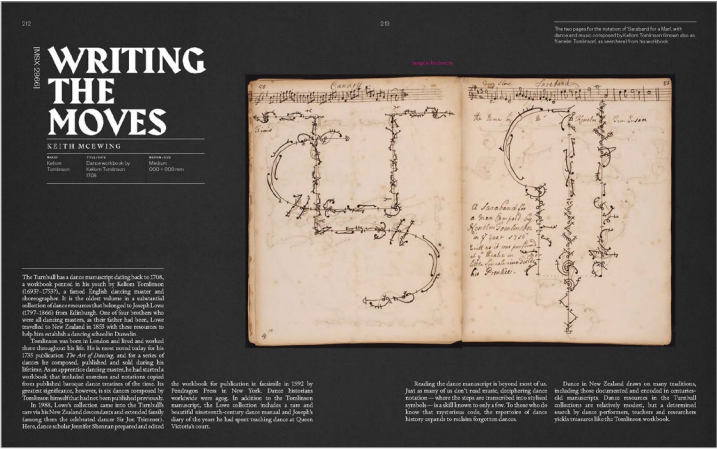 212
213
The two pages for the notation of 'Saraband for a Man', with
dance and music composed by Kellom Tomlinson (known also as
'Kenelm Tomlinson', as seen here) from his workbook.
WRITING
THE
MOVES
KEITH MCEWING
Kellom
Tomlinson
Dance workbook by
Kellom Tomlinson
1708
Medium
000 × 000mm
Saraband
A Saraband for
a Man
The Turnbull has a dance manuscript dating back to 1708,
a workbook penned in his youth by Kellom Tomlinson
(1693?–1753?), a famed English dancing master and
choreographer. It is the oldest volume in a substantial
collection of dance resources that belonged to Joseph Lowe
(1797–1866) from Edinburgh. One of four brothers who
were all dancing masters, as their father had been, Lowe
travelled to New Zealand in 1853 with these resources to
help him establish a dancing school in Dunedin.
Tomlinson was born in London and lived and worked
there throughout his life. He is most noted today for his
1735 publication The Art of Dancing, and for a series of
dances he composed, published and sold during his
lifetime. As an apprentice dancing master, he had started a
workbook that included exercises and notations copied
from published baroque dance treatises of the time. Its
greatest significance, however, is six dances composed by
Tomlinson himself that had not been published previously.
In 1988, Lowe's collection came into the Turnbull's
care via his New Zealand descendants and extended family
(among them the celebrated dancer Sir Jon Trimmer).
Here, dance scholar Jennifer Shennan prepared and edited
the workbook for publication in facsimile in 1992 by
Pendragon Press in New York. Dance historians
worldwide were agog. In addition to the Tomlinson
manuscript, the Lowe collection includes a rare and
beautiful nineteenth-century dance manual and Joseph's
diary of the years he had spent teaching dance at Queen
Victoria's court.
Reading the dance manuscript is beyond most of us.
Just as many of us don't read music, deciphering dance
notation—where the steps are transcribed into stylised
symbols—is a skill known to only a few. To those who do
know that mysterious code, the repertoire of dance
history expands to reclaim forgotten dances.
Dance in New Zealand draws on many traditions,
including those documented and encoded in centuries-
old manuscripts. Dance resources in the Turnbull
collections are relatively modest, but a determined
search by dance performers, teachers and researchers
yields treasures like the Tomlinson workbook.